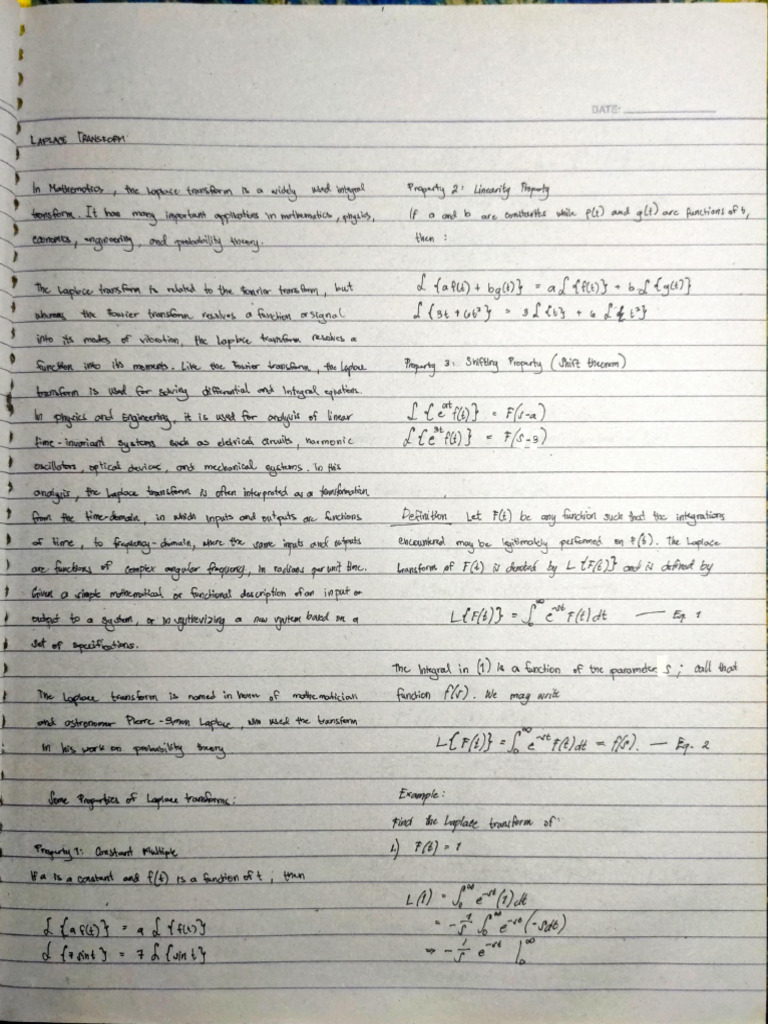 DATE:
LAPLACE TRANSFORM
In Mathematics, the Laplace transform is a widely used integral
transform. It has many important applications in mathematics, physics,
economics, engineering, and probability theory.
The Laplace transform is related to the Fourier transform, but
whereas the Fourier transform resolves a function or signal
into its modes of vibration, the Laplace transform resolves a
function into its moments. Like the Fourier transform, the Laplace
transform is used for solving differential and integral equations.
In physics and Engineering, it is used for analysis of linear
time-invariant systems such as electrical circuits, harmonic
oscillators, optical devices, and mechanical systems. In this
analysis, the Laplace transform is often interpreted as a transformation
from the time-domain, in which inputs and outputs are functions
of time, to frequency-domain, where the same inputs and outputs
are functions of complex angular frequency, in radians per unit time.
Given a simple mathematical or functional description of an input or
output to a system, or in synthesizing a new system based on a
set of specifications.
The Laplace transform is named in honor of mathematician
and astronomer Pierre-Simon Laplace, who used the transform
in his work on probability theory
Some Properties of Laplace transforms:
Property 1: Constant Multiple
If a is a constant and f(t) is a function of t, then
ℒ {a f(t)} = a ℒ {f(t)}
ℒ {7 sin t} = 7 ℒ {sin t}
Property 2: Linearity Property
If a and b are constants while f(t) and g(t) are functions of t,
then:
ℒ {a f(t) + b g(t)} = a ℒ {f(t)} + b ℒ {g(t)}
ℒ {3t + 6t²} = 3 ℒ {t} + 6 ℒ {t²}
Property 3: Shifting Property (Shift theorem)
ℒ {e^at f(t)} = F(s-a)
ℒ {e^3t f(t)} = F(s-3)
Definition Let F(t) be any function such that the integrations
encountered may be legitimately performed on F(t). The Laplace
transform of F(t) is denoted by L{F(t)} and is defined by
L{F(t)} = ∫₀^∞ e^-st F(t) dt — Eq. 1
The Integral in (1) is a function of the parameter s; call that
function f(s). We may write
L{F(t)} = ∫₀^∞ e^-st F(t) dt = f(s). — Eq. 2
Example:
Find the Laplace transform of:
1.) F(t) = 1
L(1) = ∫₀^∞ e^-st (1) dt
= -1/s ∫₀^∞ e^-st (-s dt)
⇒ -1/s e^-st |₀^∞